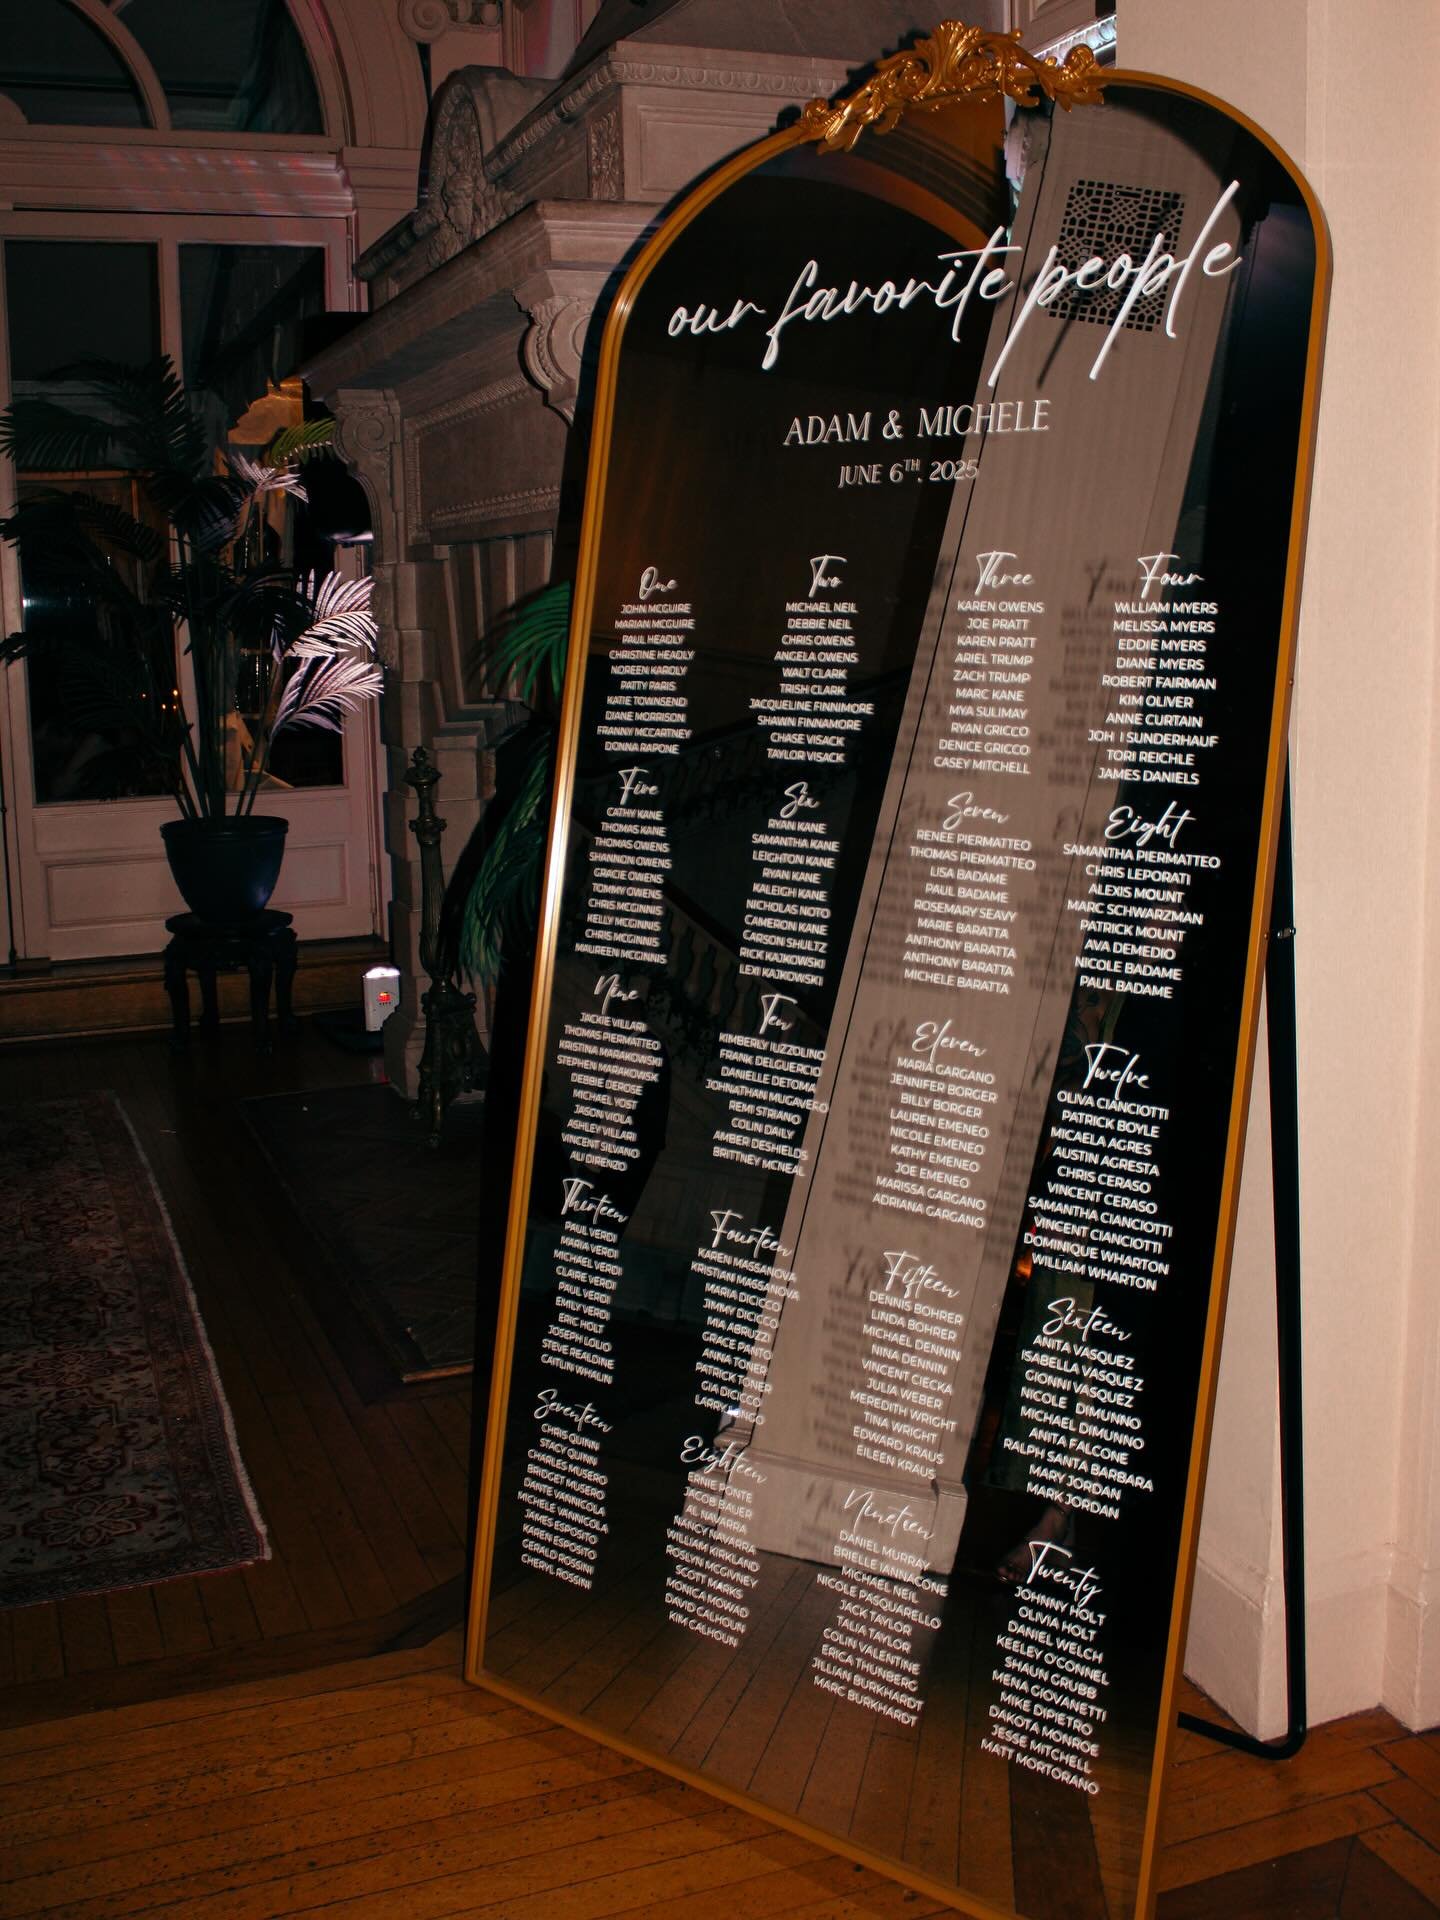 our favorite people
ADAM & MICHELE
JUNE 6TH, 2025
One
JOHN MCGUIRE
MARIAN MCGUIRE
PAUL HEADLY
CHRISTINE HEADLY
NOREEN KARDLY
PATTY PARIS
KATIE TOWNSEND
DIANE MORRISON
FRANNY MCCARTNEY
DONNA RAPONE
Two
MICHAEL NEIL
DEBBIE NEIL
CHRIS OWENS
ANGELA OWENS
WALT CLARK
TRISH CLARK
JACQUELINE FINNIMORE
SHAWN FINNAMORE
CHASE VISACK
TAYLOR VISACK
Three
KAREN OWENS
JOE PRATT
KAREN PRATT
ARIEL TRUMP
ZACH TRUMP
MARC KANE
MYA SULIMAY
RYAN GRICCO
DENICE GRICCO
CASEY MITCHELL
Four
WILLIAM MYERS
MELISSA MYERS
EDDIE MYERS
DIANE MYERS
ROBERT FAIRMAN
KIM OLIVER
ANNE CURTAIN
JOH I SUNDERHAUF
TORI REICHLE
JAMES DANIELS
Five
CATHY KANE
THOMAS KANE
THOMAS OWENS
SHANNON OWENS
GRACIE OWENS
TOMMY OWENS
CHRIS MCGINNIS
KELLY MCGINNIS
CHRIS MCGINNIS
MAUREEN MCGINNIS
Six
RYAN KANE
SAMANTHA KANE
LEIGHTON KANE
RYAN KANE
KALEIGH KANE
NICHOLAS NOTO
CAMERON KANE
CARSON SHULTZ
RICK KAJKOWSKI
LEXI KAJKOWSKI
Seven
RENEE PIERMATTEO
THOMAS PIERMATTEO
LISA BADAME
PAUL BADAME
ROSEMARY SEAVY
MARIE BARATTA
ANTHONY BARATTA
ANTHONY BARATTA
MICHELE BARATTA
Eight
SAMANTHA PIERMATTEO
CHRIS LEPORATI
ALEXIS MOUNT
MARC SCHWARZMAN
PATRICK MOUNT
AVA DEMEDIO
NICOLE BADAME
PAUL BADAME
Nine
JACKIE VILLARI
THOMAS PIERMATTEO
KRISTINA MARAKOWSKI
STEPHEN MARAKOWSK
DEBBIE DEROSE
MICHAEL YOST
JASON VIOLA
ASHLEY VILLARI
VINCENT SILVANO
ALI DIRENZO
Ten
KIMBERLY IUZZOLINO
FRANK DELGUERCIO
DANIELLE DETOMA
JOHNATHAN MUGAVERO
REMI STRIANO
COLIN DAILY
AMBER DESHIELDS
BRITTNEY MCNEAL
Eleven
MARIA GARGANO
JENNIFER BORGER
BILLY BORGER
LAUREN EMENEO
NICOLE EMENEO
KATHY EMENEO
JOE EMENEO
MARISSA GARGANO
ADRIANA GARGANO
Twelve
OLIVA CIANCIOTTI
PATRICK BOYLE
MICAELA AGRES
AUSTIN AGRESTA
CHRIS CERASO
VINCENT CERASO
SAMANTHA CIANCIOTTI
VINCENT CIANCIOTTI
DOMINIQUE WHARTON
WILLIAM WHARTON
Thirteen
PAUL VERDI
MARIA VERDI
MICHAEL VERDI
CLAIRE VERDI
PAUL VERDI
EMILY VERDI
ERIC HOLT
JOSEPH LOLIO
STEVE REALDINE
CAITLIN WHALIN
Fourteen
KAREN MASSANOVA
KRISTIAN MASSANOVA
MARIA DICICCO
JIMMY DICICCO
MIA ABRUZZI
GRACE PANTO
ANNA TONER
PATRICK TONER
GIA DICICCO
LARRY LONGO
Fifteen
DENNIS BOHRER
LINDA BOHRER
MICHAEL DENNIN
NINA DENNIN
VINCENT CIECKA
JULIA WEBER
MEREDITH WRIGHT
TINA WRIGHT
EDWARD KRAUS
EILEEN KRAUS
Sixteen
ANITA VASQUEZ
ISABELLA VASQUEZ
GIONNI VASQUEZ
NICOLE DIMUNNO
MICHAEL DIMUNNO
ANITA FALCONE
RALPH SANTA BARBARA
MARY JORDAN
MARK JORDAN
Seventeen
CHRIS QUINN
STACY QUINN
CHARLES MUSERO
BRIDGET MUSERO
DANTE VANNICOLA
MICHELE VANNICOLA
JAMES ESPOSITO
KAREN ESPOSITO
GERALD ROSSINI
CHERYL ROSSINI
Eighteen
ERNIE PONTE
JACOB BAUER
AL NAVARRA
NANCY NAVARRA
WILLIAM KIRKLAND
ROSLYN MCGIVNEY
SCOTT MARKS
MONICA MOWAD
DAVID CALHOUN
KIM CALHOUN
Nineteen
DANIEL MURRAY
BRIELLE IANNACONE
MICHAEL NEIL
NICOLE PASQUARELLO
JACK TAYLOR
TALIA TAYLOR
COLIN VALENTINE
ERICA THUNBERG
JILLIAN BURKHARDT
MARC BURKHARDT
Twenty
JOHNNY HOLT
OLIVIA HOLT
DANIEL WELCH
KEELEY O'CONNEL
SHAUN GRUBB
MENA GIOVANETTI
MIKE DIPIETRO
DAKOTA MONROE
JESSE MITCHELL
MATT MORTORANO